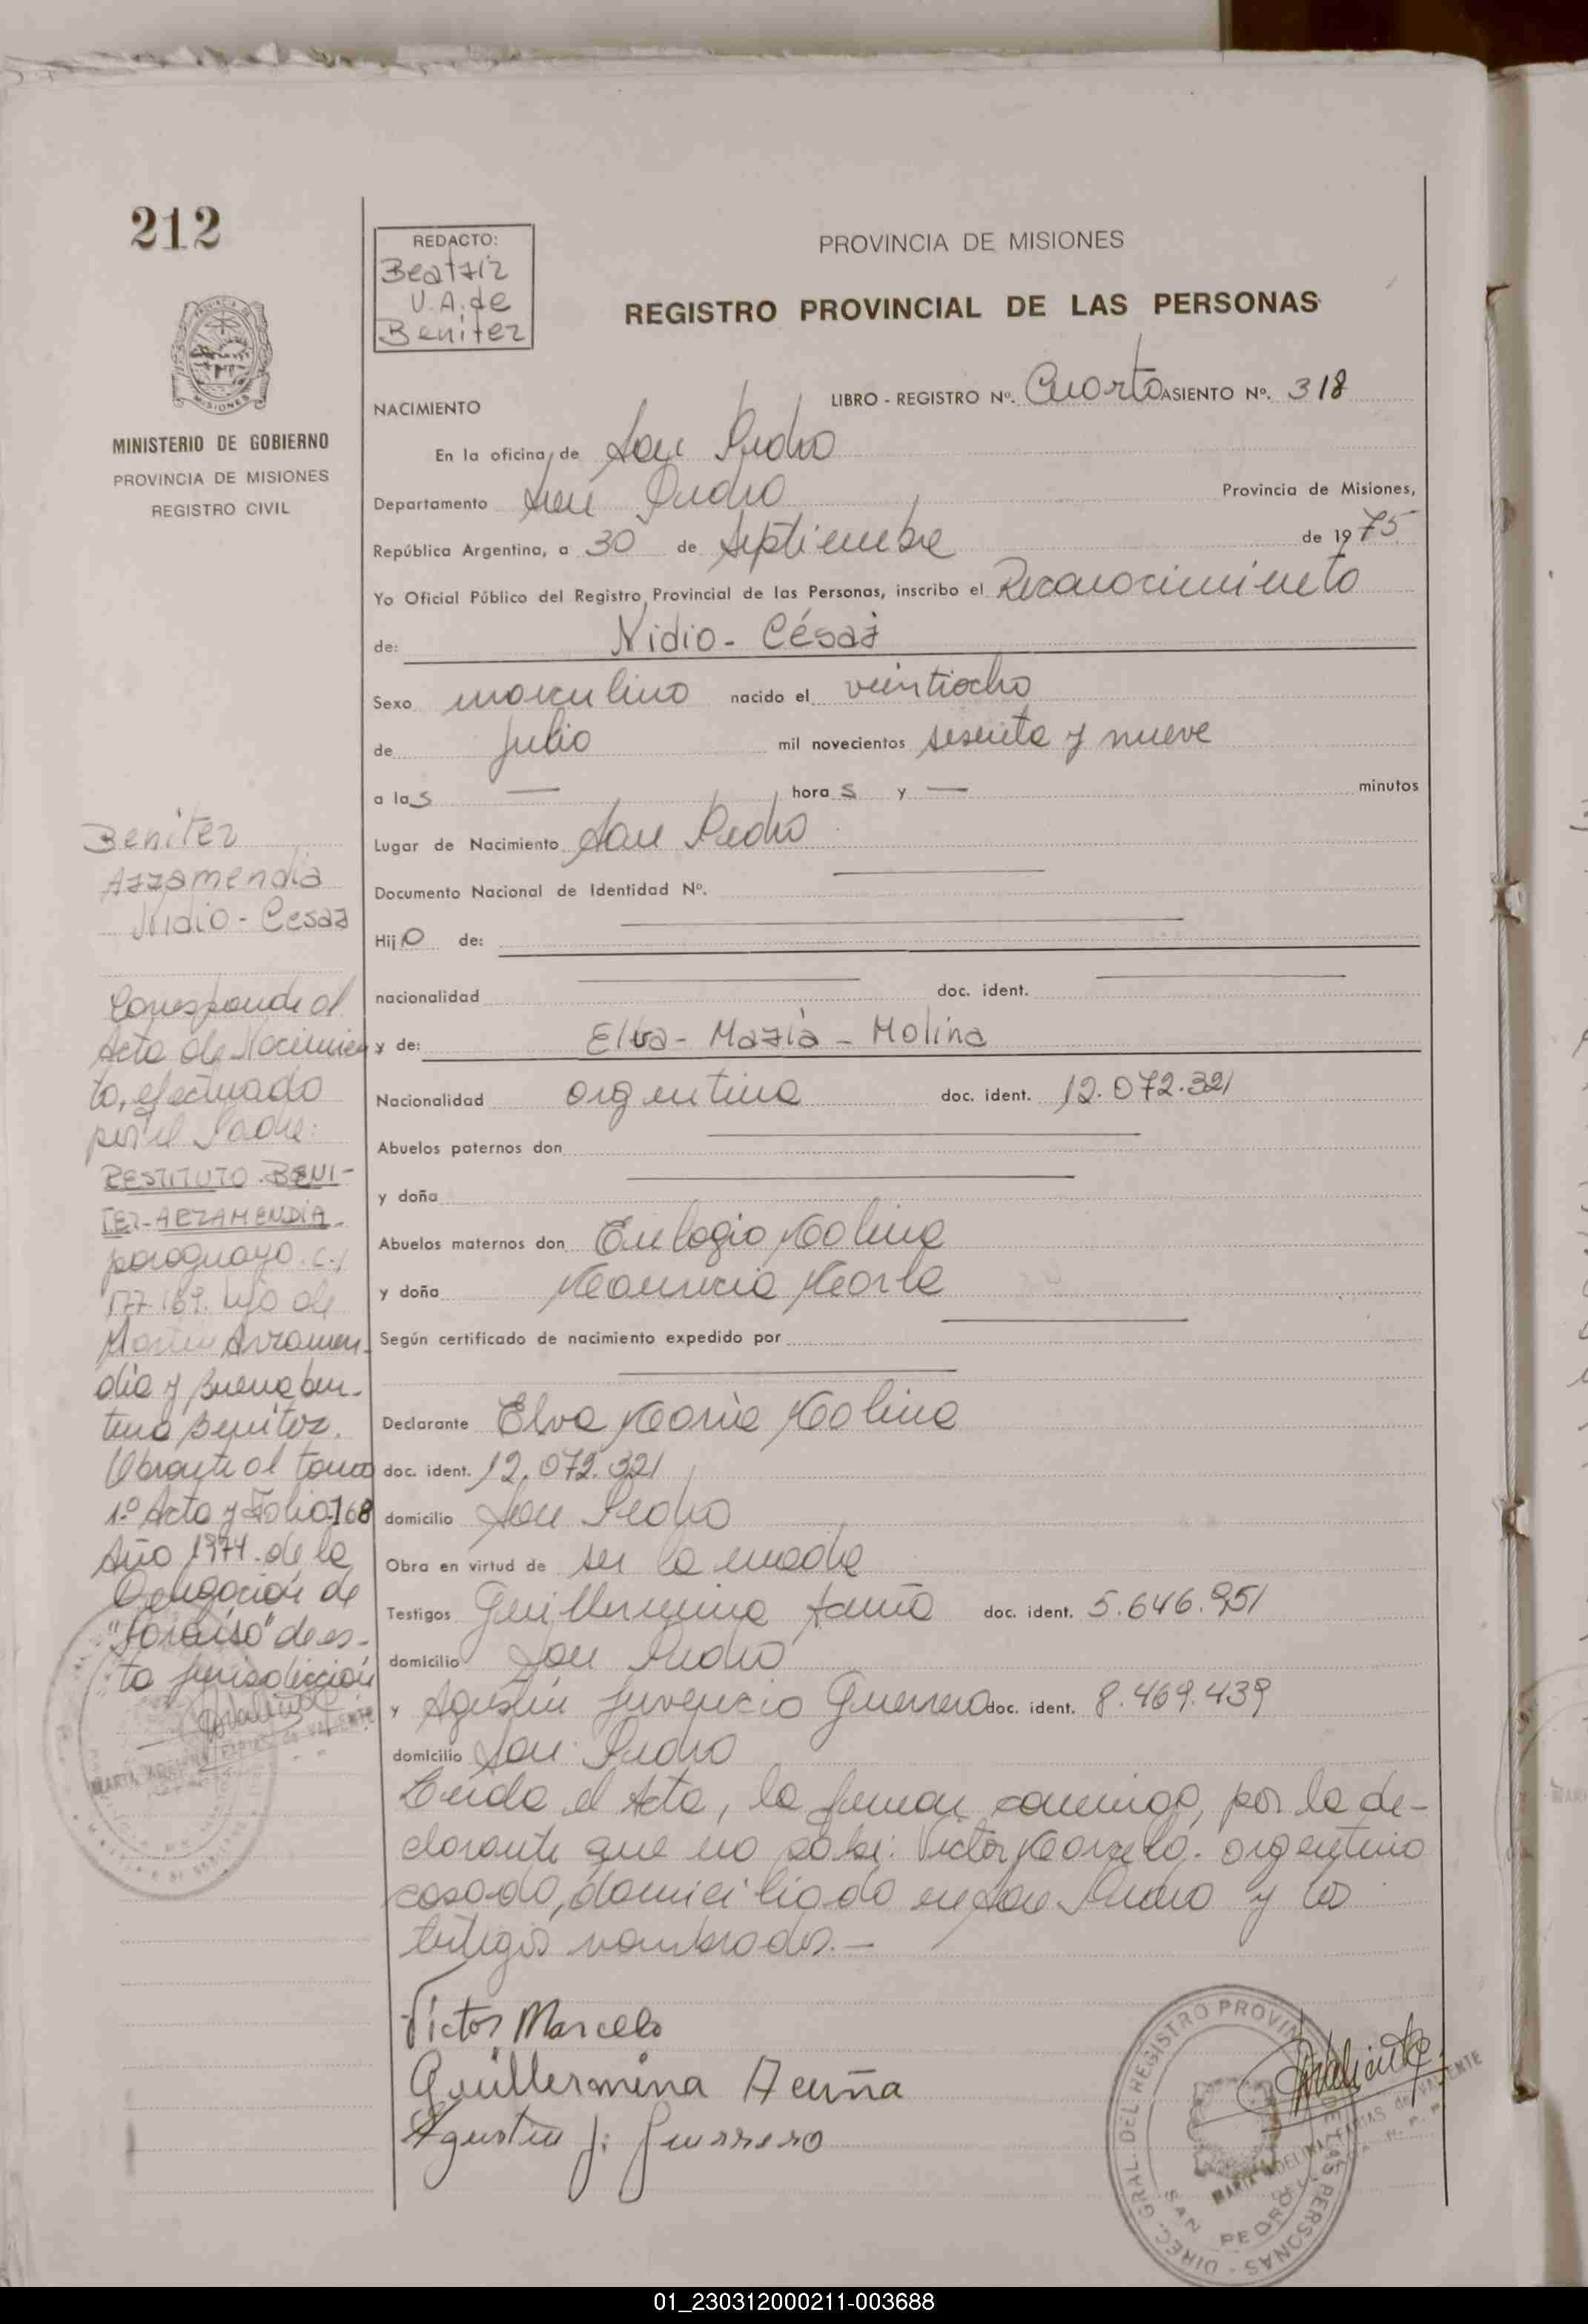 212
REDACTO:
Beatriz
V.A. de
Benitez
PROVINCIA DE MISIONES
REGISTRO PROVINCIAL DE LAS PERSONAS
MISIONES
MINISTERIO DE GOBIERNO
PROVINCIA DE MISIONES
REGISTRO CIVIL
NACIMIENTO
LIBRO - REGISTRO Nº. Cuarto ASIENTO Nº. 318
En la oficina de San Pedro
Departamento San Pedro Provincia de Misiones,
República Argentina, a 30 de Septiembre de 1975
Yo Oficial Público del Registro Provincial de las Personas, inscribo el Reconocimiento
de: Nidio - César
Sexo masculino nacido el veintiocho
de Julio mil novecientos sesenta y nueve
a las — horas y — minutos
Lugar de Nacimiento San Pedro
Documento Nacional de Identidad Nº.
Hijo de:
nacionalidad doc. ident.
y de: Elva - María - Molina
Nacionalidad argentina doc. ident. 12.072.321
Abuelos paternos don
y doña
Abuelos maternos don Eulogio Molina
y doña
Según certificado de nacimiento expedido por
Declarante Elva María Molina
doc. ident. 12.072.321
domicilio San Pedro
Obra en virtud de ser la madre
Testigos Guillermina Acuña doc. ident. 5.646.951
domicilio San Pedro
y Agustín Juvencio Guerrero doc. ident. 8.469.439
domicilio San Pedro
Leída el Acta, la firman conmigo, por la de-
clarante que no sabe: Victor Marcelo. argentino
casado, domiciliado en San Pedro y los
testigos nombrados.—
Benitez
Arzamendia
Nidio - Cesar
Corresponde al
Acta de Nacimien
to, efectuado
por el Padre:
RESTITUTO BENI-
TEZ - ARZAMENDIA
paraguayo. C.I
177.169. hijo de
Martin Arzamen-
dia y Buenaben-
tura Benitez.
Obrante al tomo
1º Acta y Folio 168
Año 1974. de la
Delegación de
"Paraíso" de es-
ta jurisdicción
Victor Marcelo
Guillermina Acuña
Agustin J. Guerrero
DIREC. GRAL. DEL REGISTRO PROVIN
LAS PERSONAS
SAN PEDRO
01_230312000211-003688